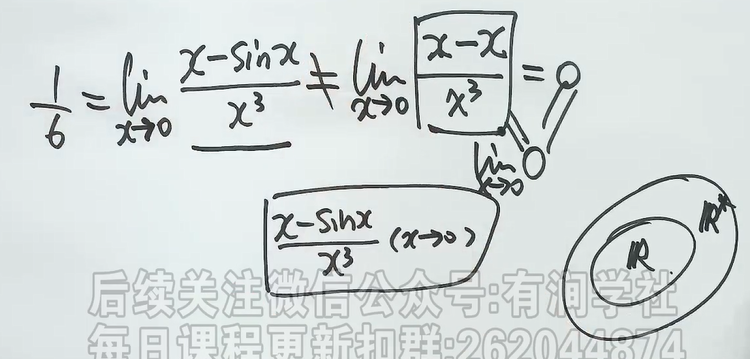 1/6 = lim x→0 x-sinx/x³ ≠ lim x→0 x-x/x³ = 0
lim x→0 0
x-sinx/x³ (x→0)
ℝ ℝ*
后续关注微信公众号:有润学社
每日课程更新扣群:262044874